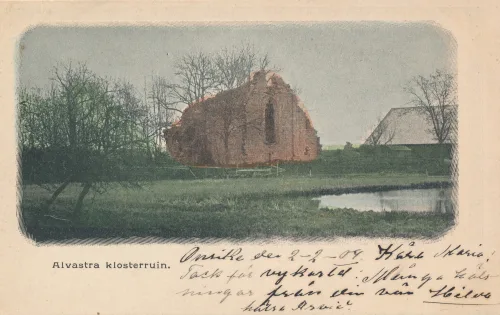 Alvastra klosterruin.
den 2-2-04 Kära Maria!
Tack för vykortet. Många häls
ningar från din vän
hälsa